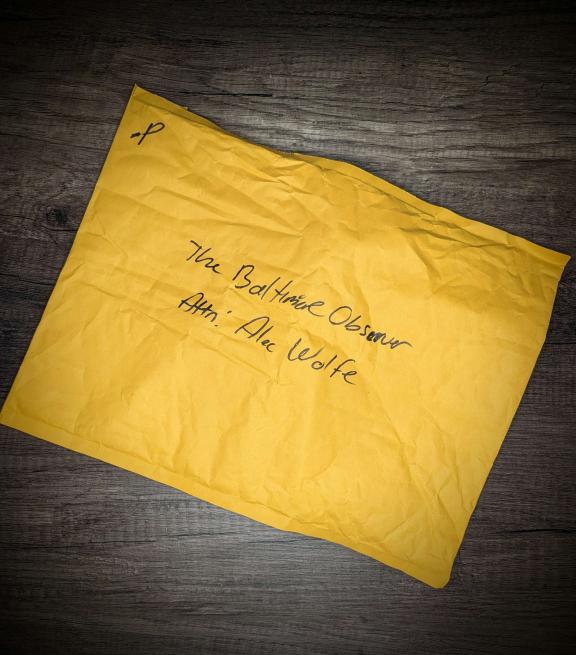 -P
The Baltimore Observer
Attn: Alec Wolfe